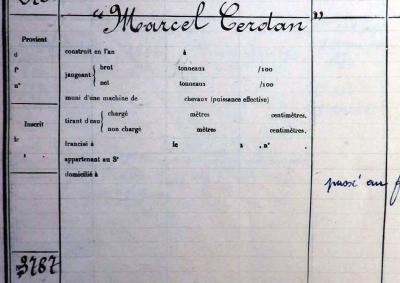 "Marcel Cerdan"
Provient
d
f°
n°
construit en l'an à
jaugeant { brut tonneaux /100
net tonneaux /100
muni d'une machine de chevaux (puissance effective)
tirant d'eau { chargé mètres centimètres.
non chargé mètres centimètres.
Inscrit
le
francisé à le n°
appartenant au Sr
domicilié à
passé au
N° 3787